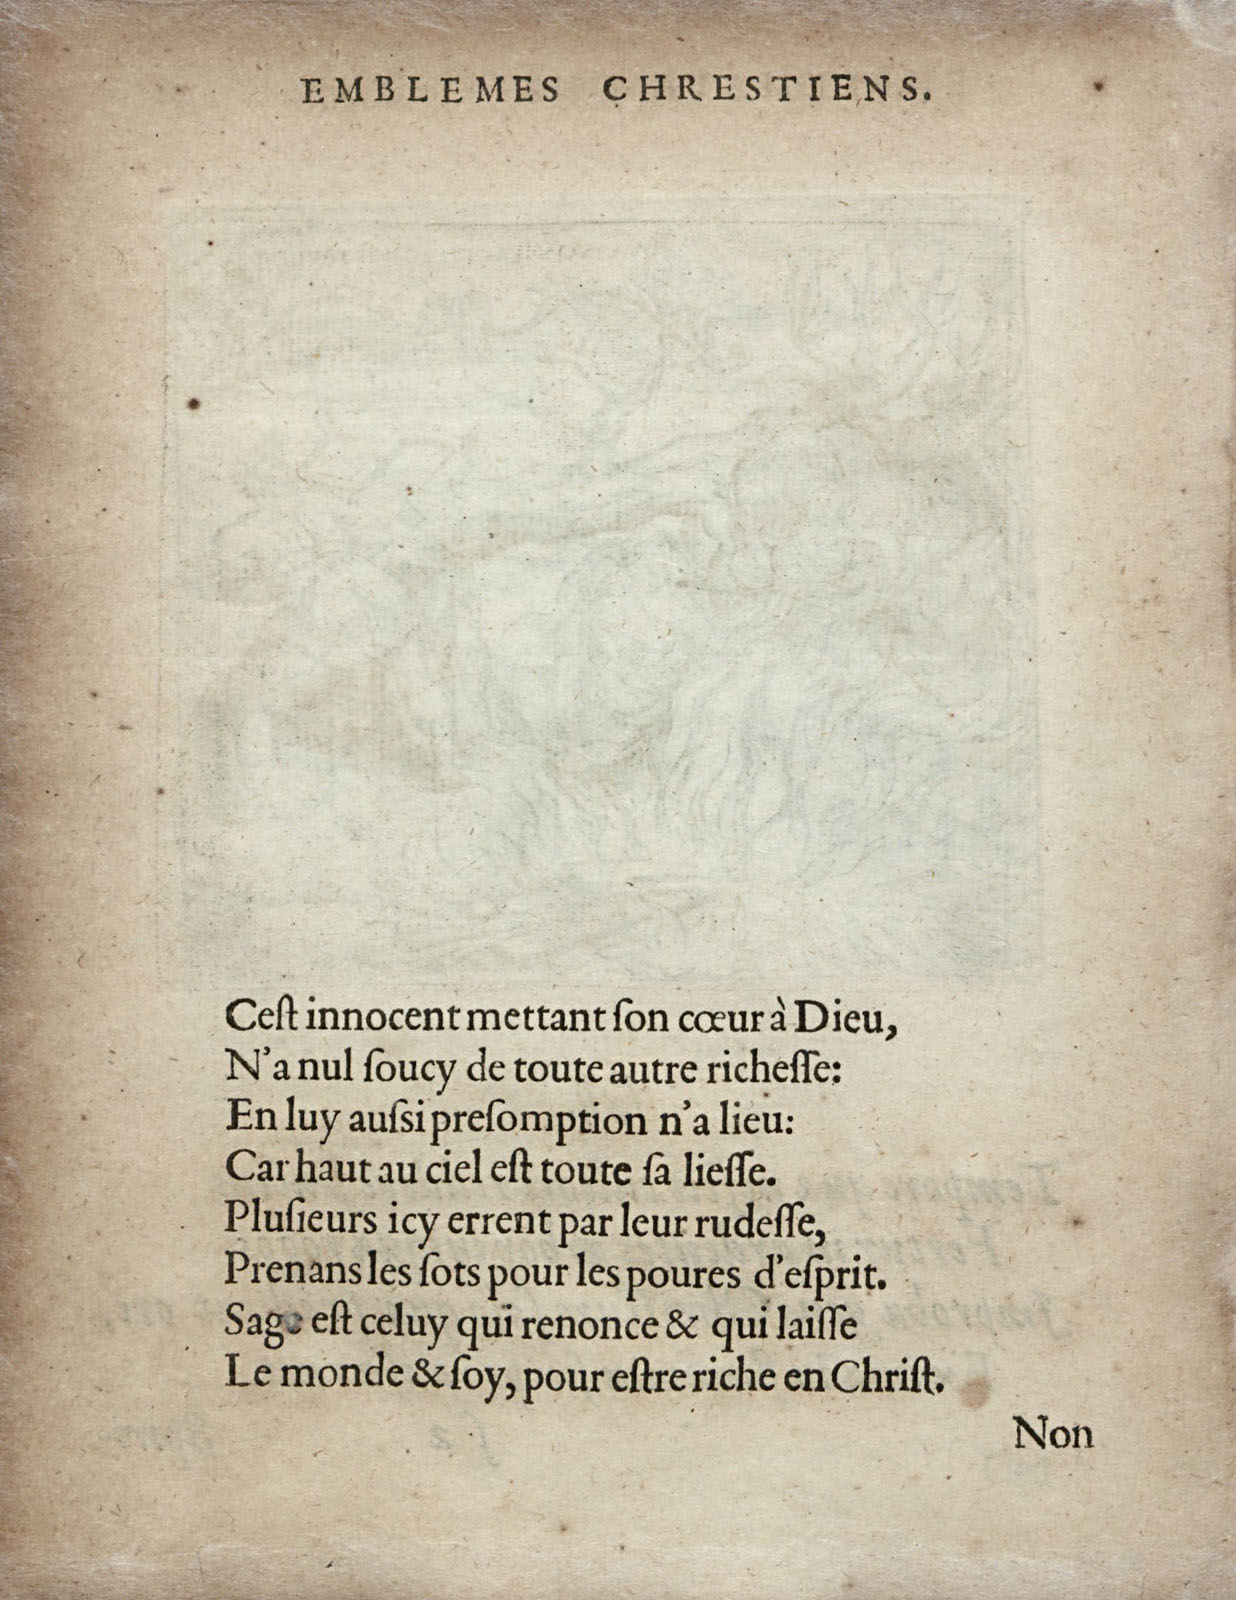 EMBLEMES CHRESTIENS.
Ceſt innocent mettant ſon cœur à Dieu,
N'a nul ſoucy de toute autre richeſſe:
En luy auſsi preſomption n'a lieu:
Car haut au ciel eſt toute ſa lieſſe.
Pluſieurs icy errent par leur rudeſſe,
Prenans les ſots pour les poures d'eſprit.
Sage eſt celuy qui renonce & qui laiſſe
Le monde & ſoy, pour eſtre riche en Chriſt.
Non